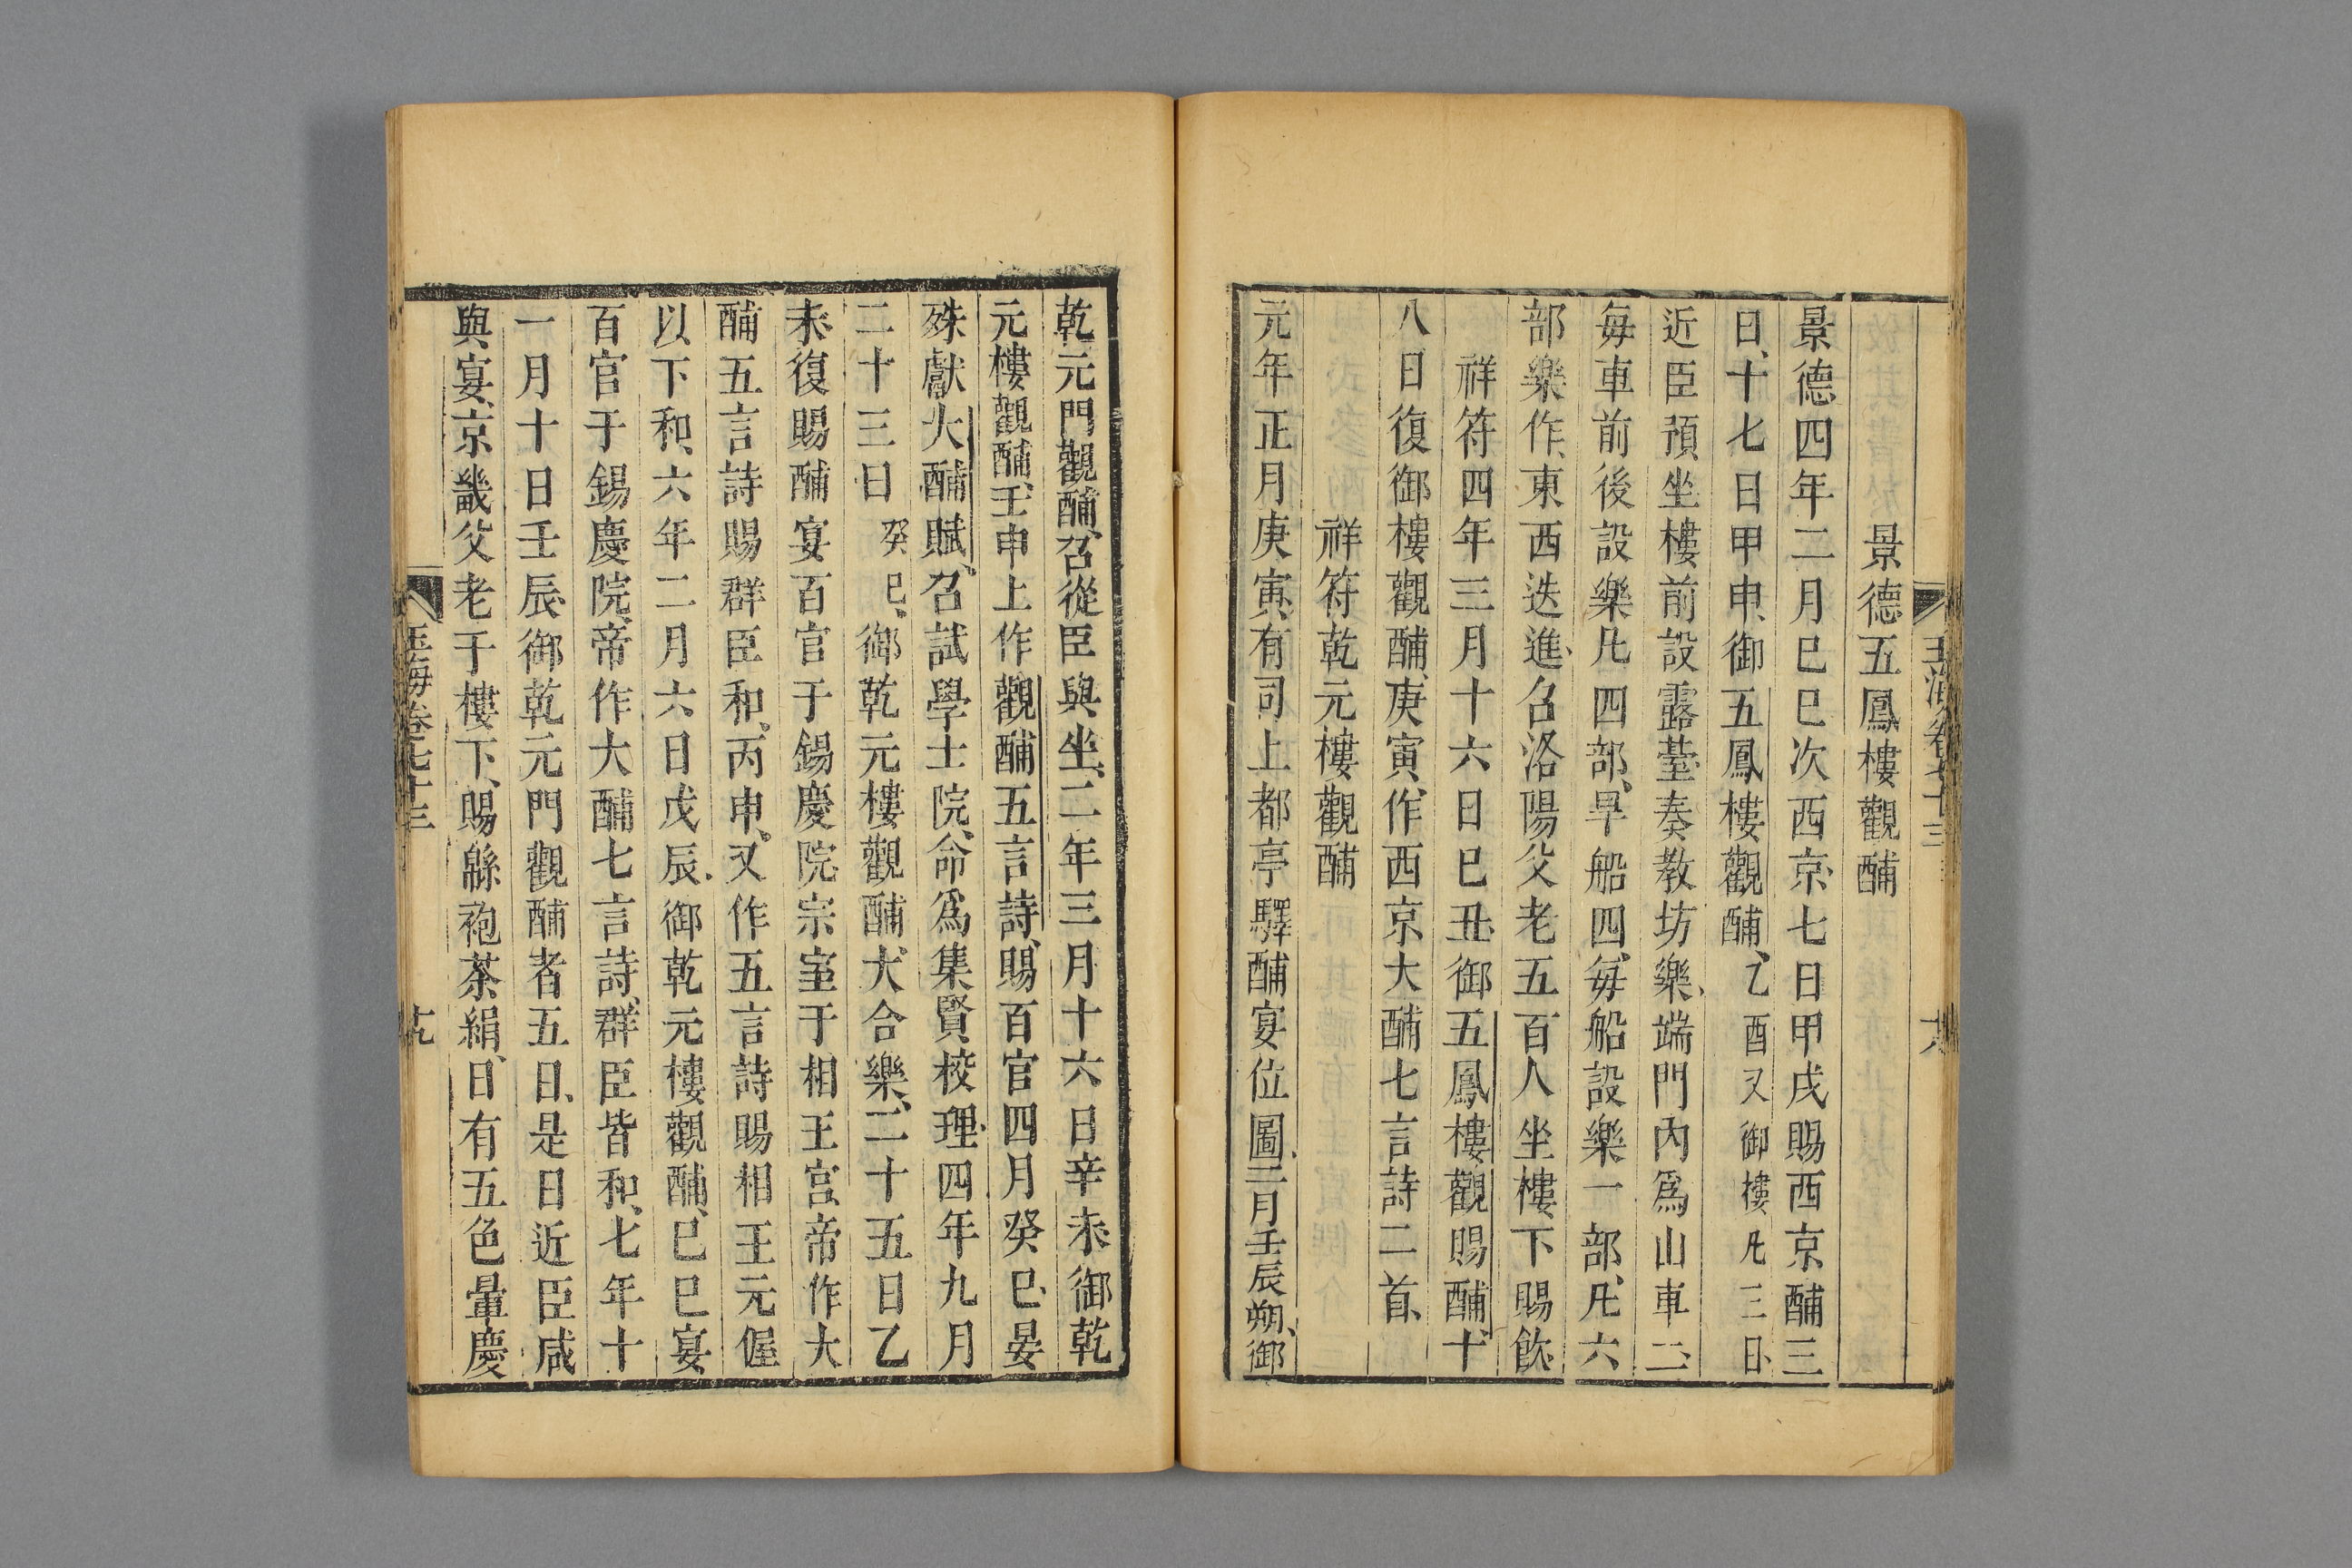 玉海卷七十三
景德五鳳樓觀酺
景德四年二月巳巳次西京七日甲戌賜西京酺三
日十七日甲申御五鳳樓觀酺乙酉又御樓凡三日
近臣預坐樓前設露臺奏教坊樂端門內爲山車二
每車前後設樂凡四部旱船四每船設樂一部凡六
部樂作東西迭進召洛陽父老五百人坐樓下賜飲
祥符四年三月十六日巳丑御五鳳樓觀賜酺十
八日復御樓觀酺庚寅作西京大酺七言詩二首
祥符乾元樓觀酺
元年正月庚寅有司上都亭驛酺宴位圖二月壬辰朔御
乾元門觀酺召從臣與坐二年三月十六日辛未御乾
元樓觀酺壬申上作觀酺五言詩賜百官四月癸巳晏
殊獻大酺賦召試學士院命爲集賢校理四年九月
二十三日癸巳御乾元樓觀酺大合樂二十五日乙
未復賜酺宴百官于錫慶院宗室于相王宮帝作大
酺五言詩賜群臣和丙申又作五言詩賜相王元偓
以下和六年二月六日戊辰御乾元樓觀酺巳巳宴
百官于錫慶院帝作大酺七言詩群臣皆和七年十
一月十日壬辰御乾元門觀酺者五日是日近臣咸
與宴京畿父老于樓下賜緜袍茶絹日有五色暈慶
玉海卷七十三
十九